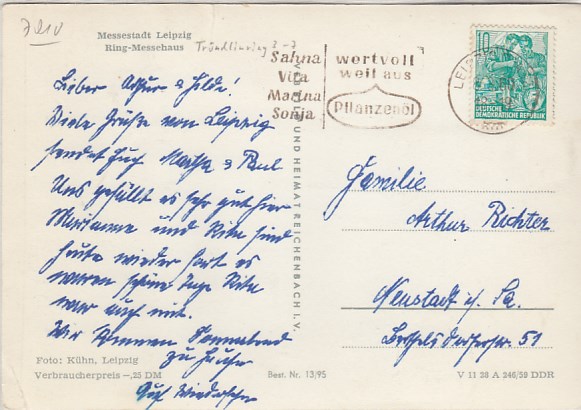 7210
Messestadt Leipzig
Ring-Messehaus Tröndlinring 2-7
Sahna
Vita
Marina
Sonja
wertvoll
weil aus
Pflanzenöl
10
DEUTSCHE
DEMOKRATISCHE REPUBLIK
LEIPZIG
Lieber Arthur & Hilde!
Viele Grüße von Leipzig
sendet Euch & Paul
Uns gefällt es sehr gut hier
Marianne und Rita sind
heute wieder fort es
waren schöne Tage Rita
war auch mit.
Wir kommen Sonnabend
zu Hause
Auf Wiedersehen
Familie
Arthur Richter
Neustadt i. Sa.
51
UND HEIMAT REICHENBACH I. V.
Foto: Kühn, Leipzig
Verbraucherpreis -,25 DM
Best. Nr. 13/95
V 11 28 A 246/59 DDR